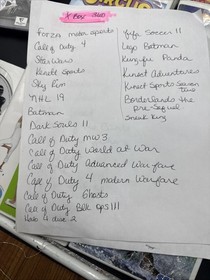 X Box 360
Forza motor sports
Call of Duty 4
Star Wars
Kinect Sports
Sky Rim
NHL 19
Batman
Dark Souls 11
Call of Duty mw3
Call of Duty World at War
Call of Duty Advanced Warfare
Call of Duty 4 modern Warfare
Call of Duty Ghosts
Call of Duty Blk ops 111
Halo 4 disc 2
Fifa Soccer 11
Lego Batman
Kungfu Panda
Kinect Adventures
Kinect Sports Season Two
Borderlands the Pre-Sequel
Sneak King